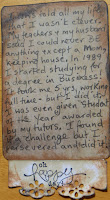 I was told all my life
that I wasn't clever.
My teachers & my husband
said I could never be
anything except a Mom,
keeping house. In 1984
I started studying for
a degree in Business.
It took me 5 yrs, working
full time - but I did it!
I was even given Student
of the Year awarded
by my tutors. I found
a challenge but I
persevered and did it.
oh
happy
day